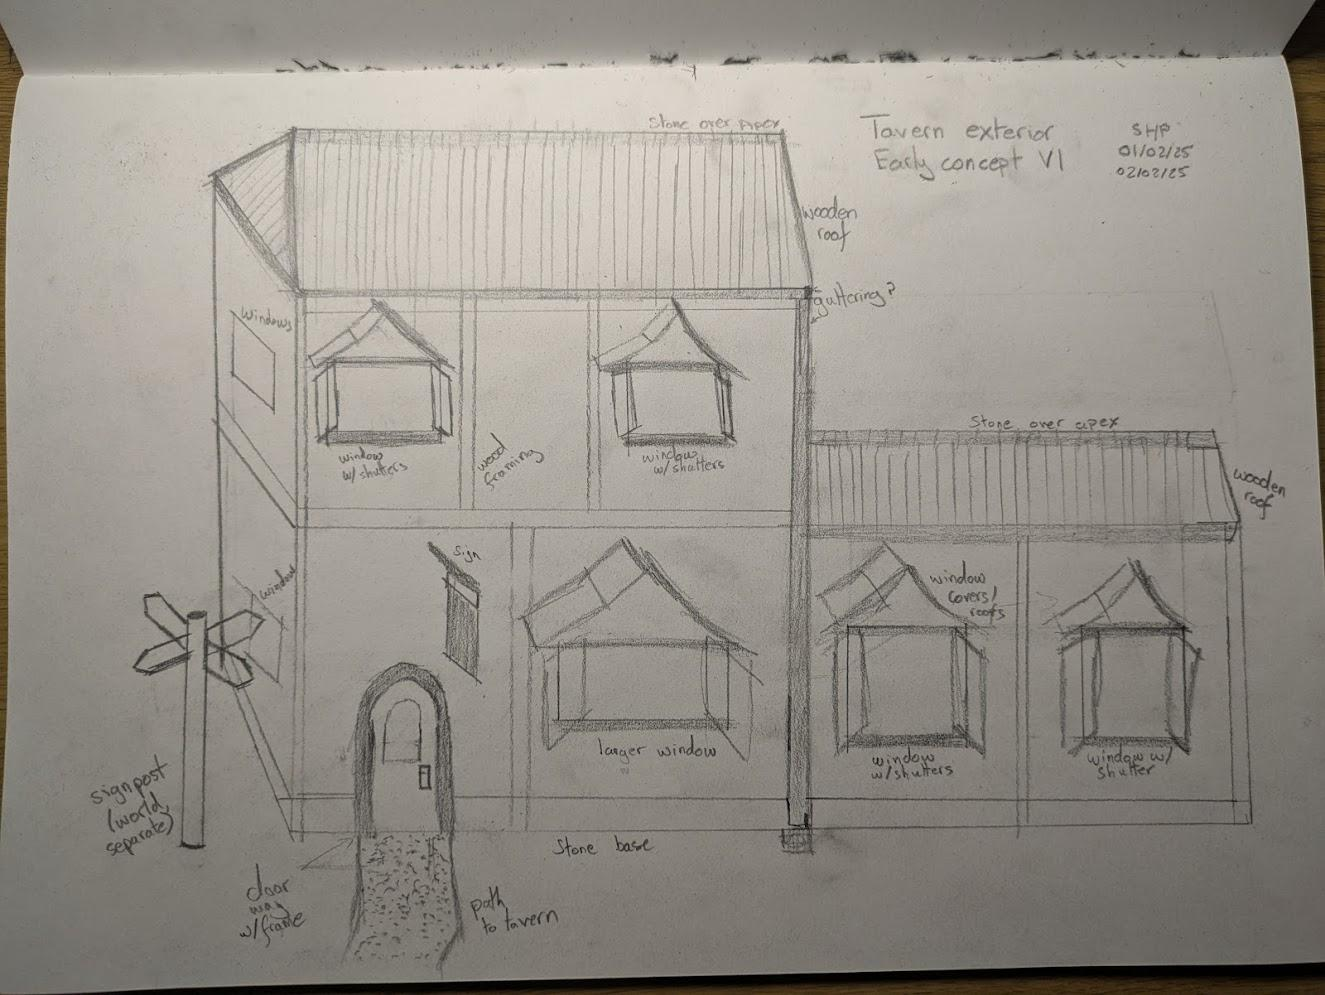 Tavern exterior
Early concept V1
SHP
01/02/25
02/02/25
Stone over apex
wooden
roof
guttering?
windows
window
w/shutters
wood
framing
window
w/shutters
Stone over apex
wooden
roof
sign
window
window
covers/
roofs
larger window
window
w/shutters
window w/
shutter
signpost
(world
separate)
Stone base
door
way
w/frame
path
to tavern